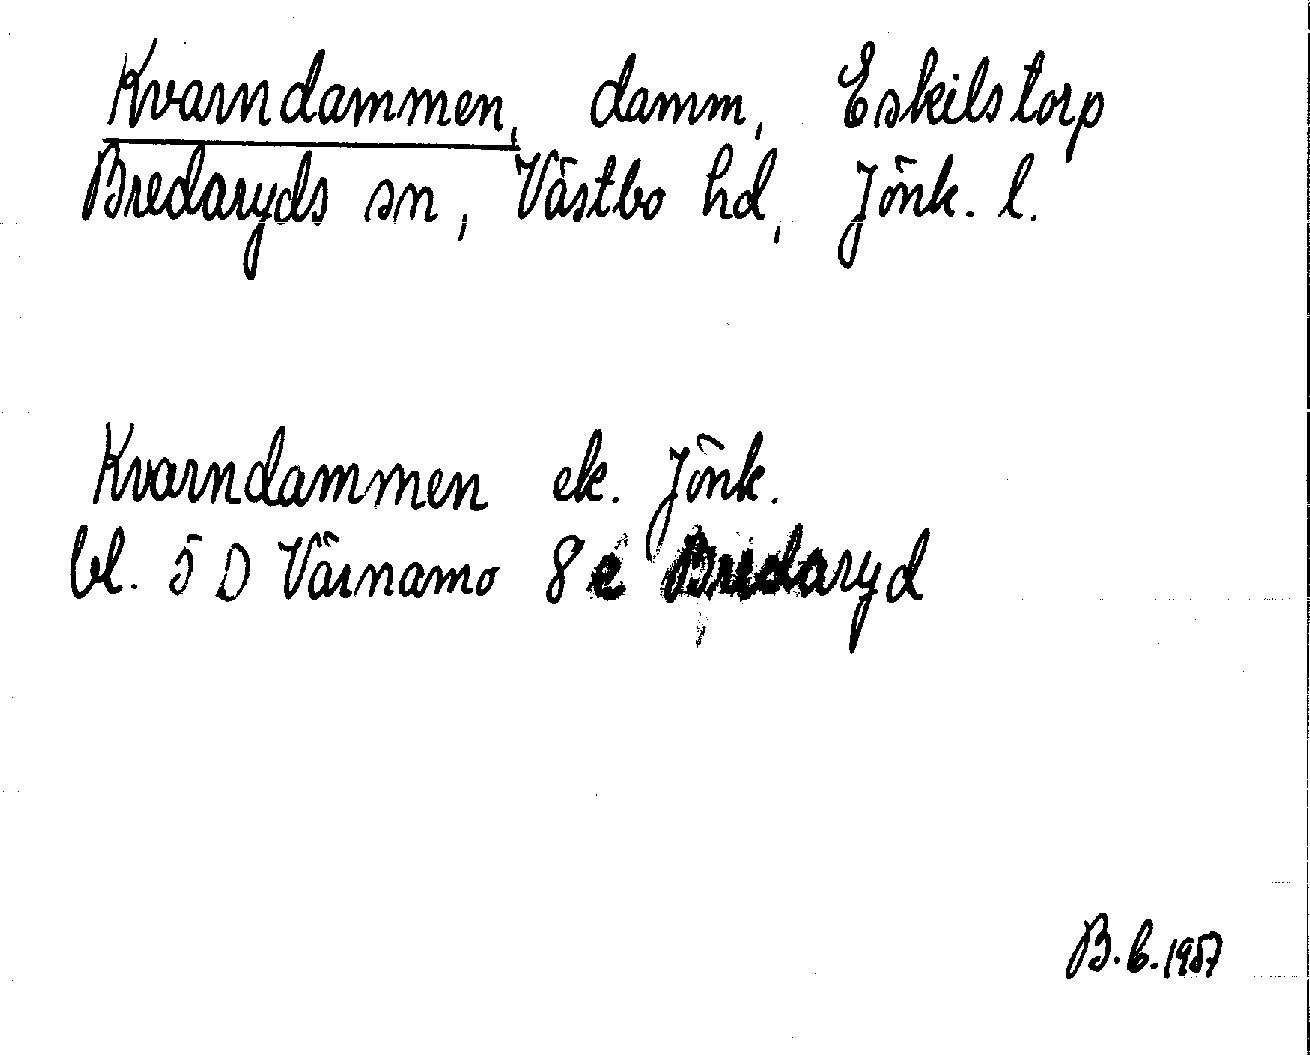 Kvarndammen, damm, Eskilstorp
Bredaryds sn, Västbo hd, Jönk. l.
Kvarndammen ek. Jönk.
bl. 5 D Värnamo 8 e Bredaryd
B. b. 1957